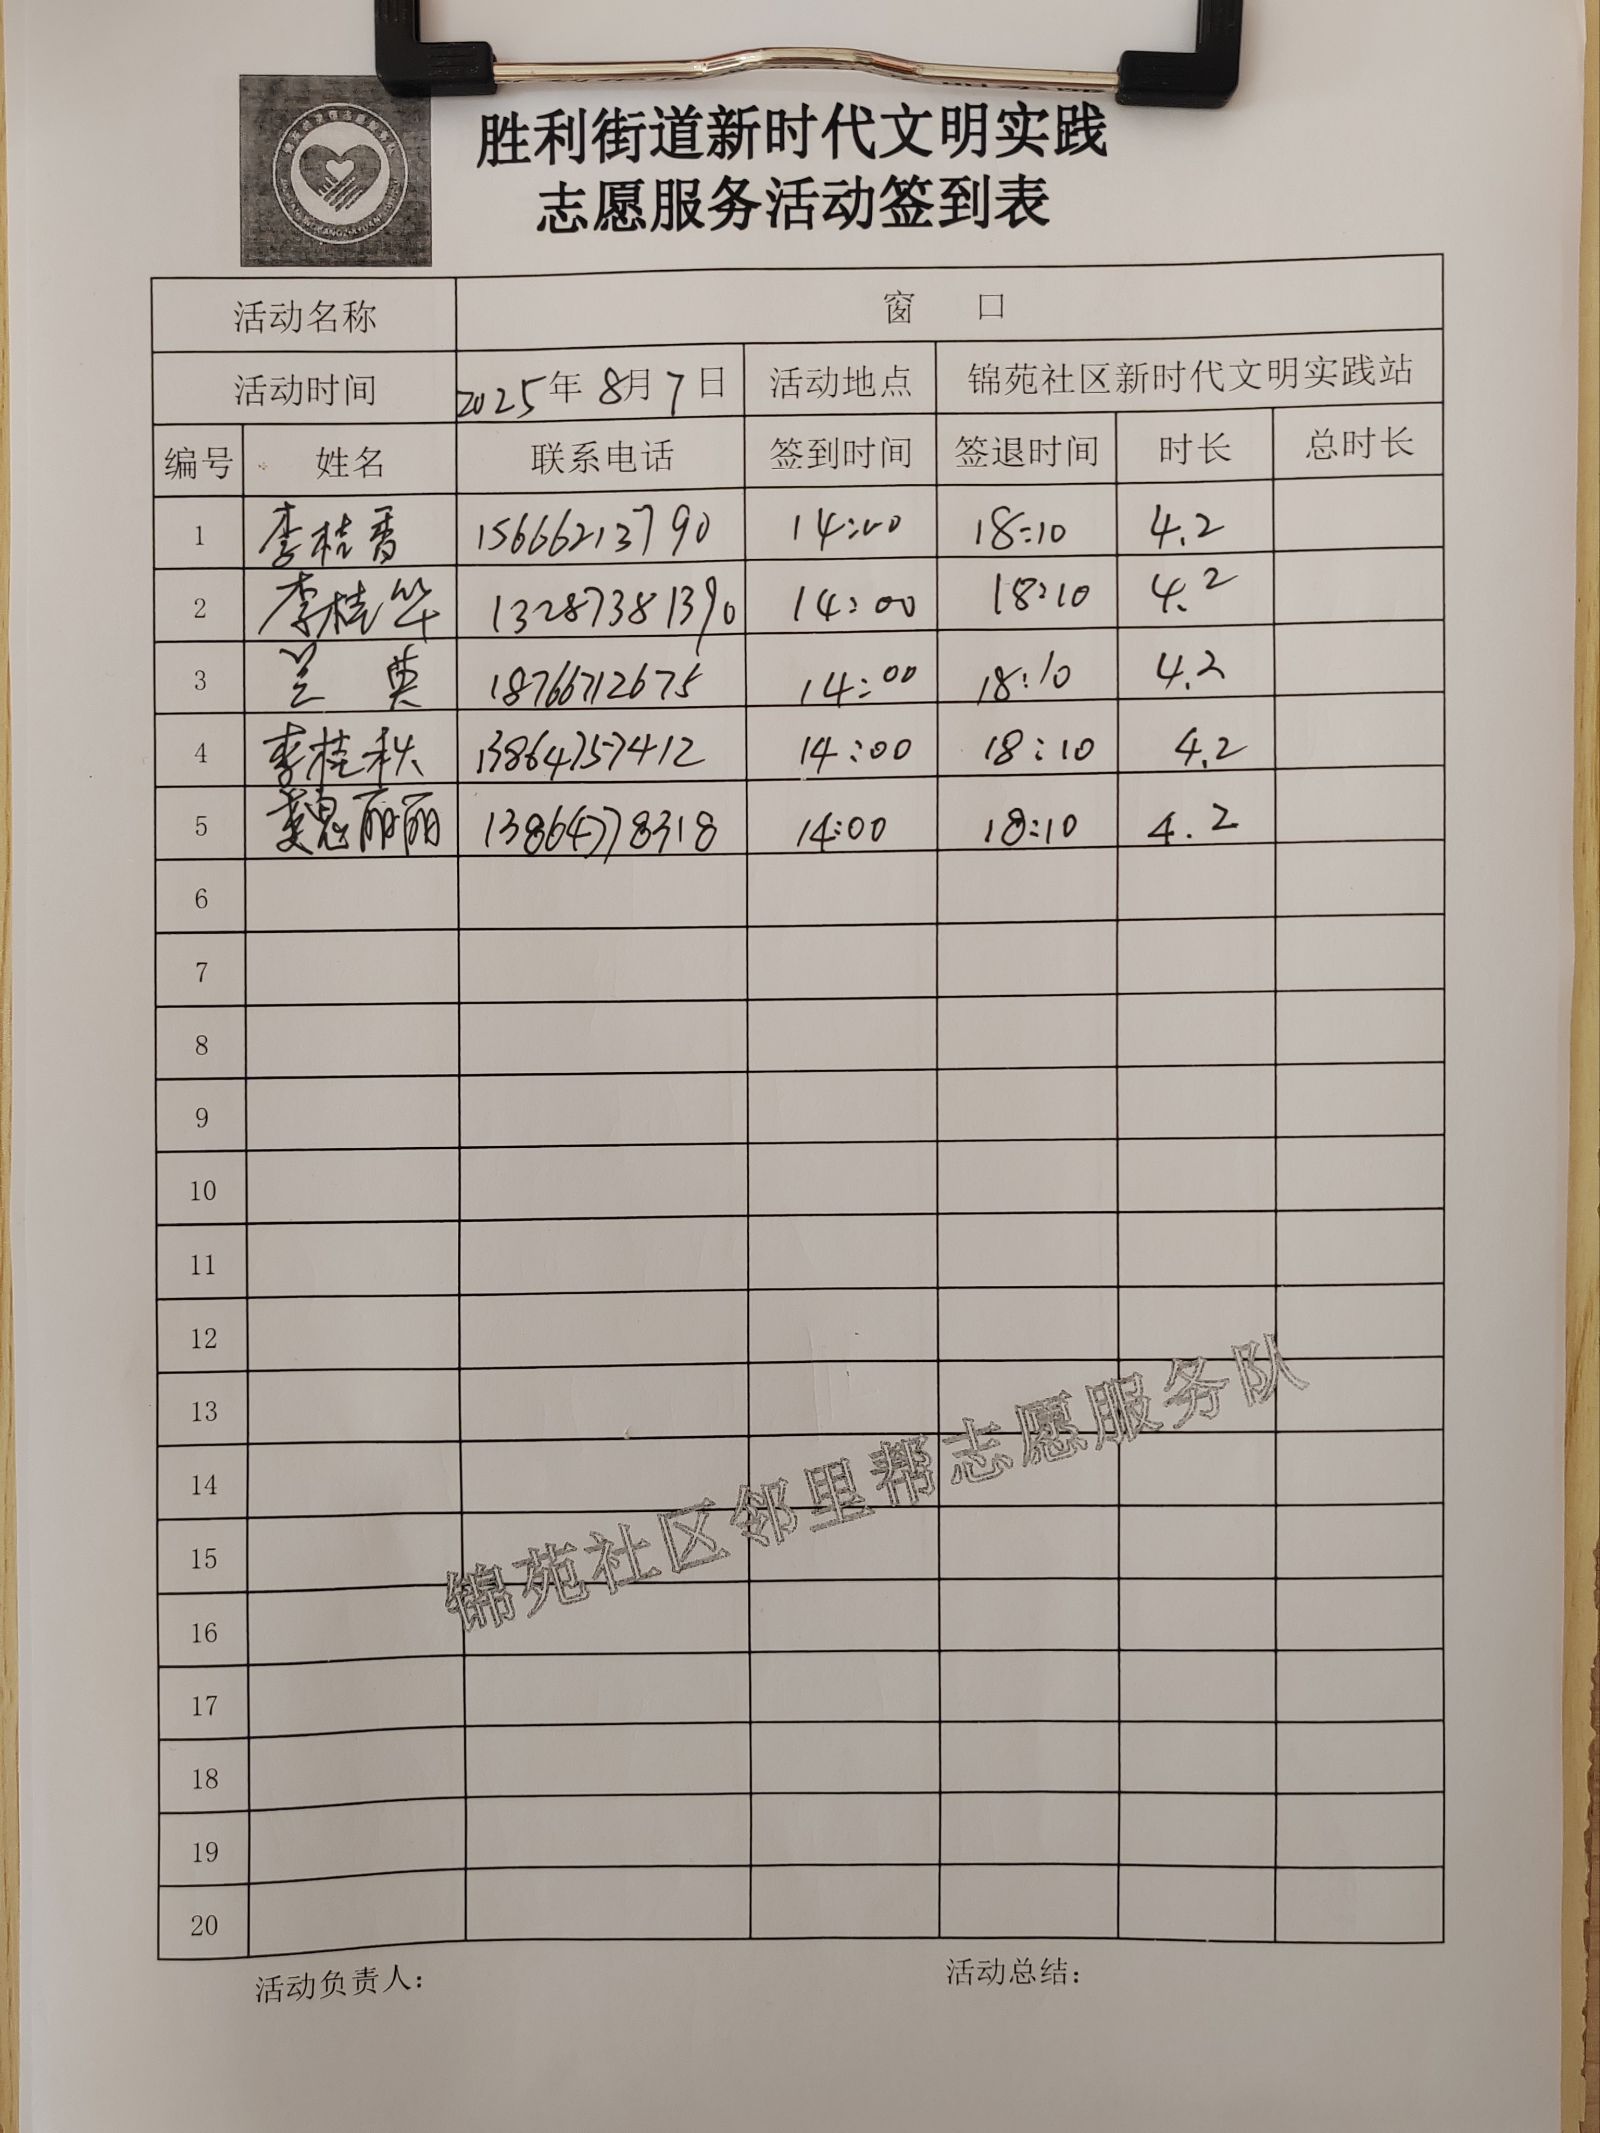 胜利街道新时代文明实践
志愿服务活动签到表
活动名称 窗 口
活动时间 2025年 8月 7日 活动地点 锦苑社区新时代文明实践站
编号 姓名 联系电话 签到时间 签退时间 时长 总时长
1 李桂香 15666213790 14:00 18:10 4.2
2 李桂华 13287381390 14:00 18:10 4.2
3 兰 18766712675 14:00 18:10 4.2
4 李桂秋 13864757412 14:00 18:10 4.2
5 魏丽丽 13864778318 14:00 18:10 4.2
6
7
8
9
10
11
12
13
14
15
16
17
18
19
20
锦苑社区邻里帮志愿服务队
活动负责人： 活动总结：